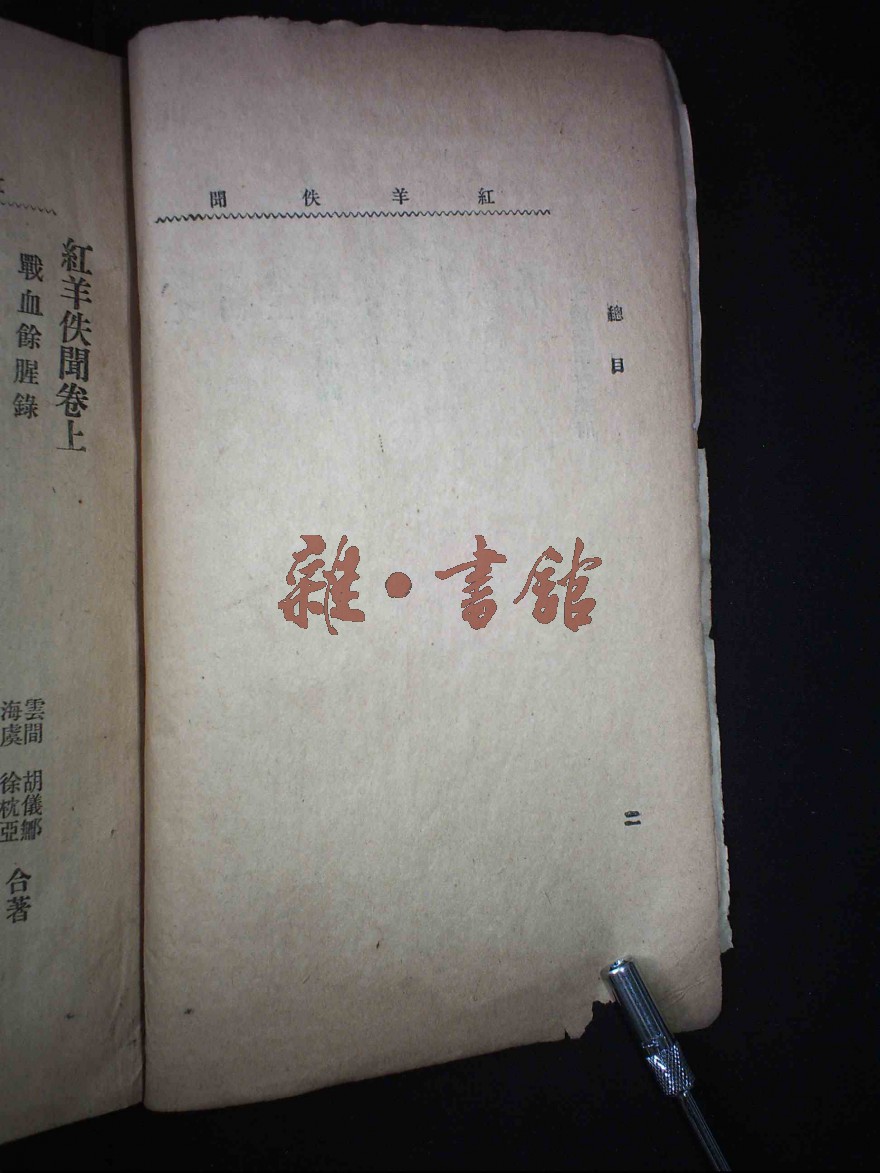 紅羊佚聞
總目
二
雜·書館
紅羊佚聞卷上
戰血餘腥錄
雲間 胡儀鄜
海虞 徐枕亞
合著